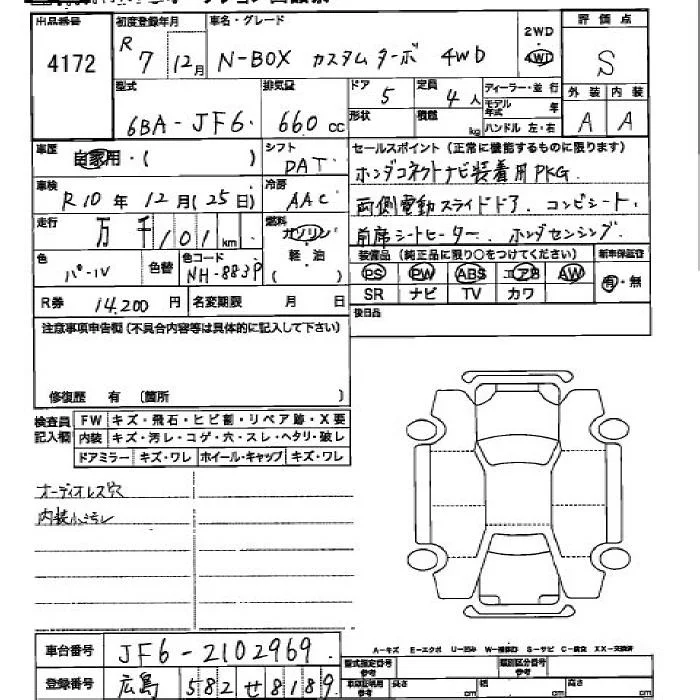 出品番号
4172
初度登録年月
R 7 12月
車名・グレード
N-BOX カスタムターボ 4WD
2WD
4WD
評価点
S
型式
6BA-JF6
排気量
660 cc
ドア
5
形状
定員
4人
積載
kg
ディーラー・並行
モデル年式 年
ハンドル 左・右
外装
内装
A
A
車歴
自家用・( )
シフト
DAT
セールスポイント(正常に機能するものに限ります)
ホンダコネクトナビ装着用PKG.
両側電動スライドドア. コンビシート.
前席シートヒーター. ホンダセンシング.
車検
R10年12月(25日)
冷房
AAC
走行
万千101km
燃料
ガソリン
軽・油
( )
色
パール
色替
色コード
NH-883P
装備品(純正品に限り○をつけてください)
新車保証書
PS PW ABS エアB AW
有・無
SR ナビ TV カワ
R券 14,200円
名変期限 月 日
後日品
注意事項申告欄(不具合内容等は具体的に記入して下さい)
修復歴 有 (箇所 )
検査員記入欄
FW キズ・飛石・ヒビ割・リペア跡・X要
内装 キズ・汚レ・コゲ・穴・スレ・ヘタリ・破レ
ドアミラー キズ・ワレ ホイール・キャップ キズ・ワレ
オーディオレス穴
内装小汚レ
車台番号
JF6-2102969
登録番号
広島 582 せ 8189
A-キズ E-エクボ U-凹み W-補修跡 S-サビ C-腐食 XX-交換済
型式指定番号
参考
類別区分番号
参考
車庫証明用
参考
長さ cm
幅 cm
高さ cm